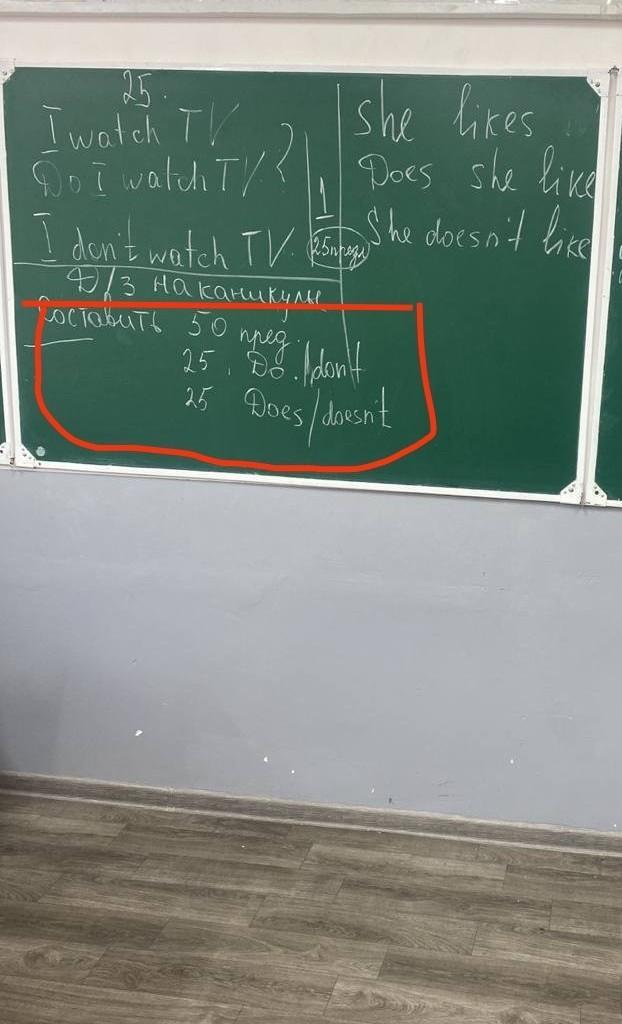 25.
I watch TV
Do I watch TV?
I don't watch TV.
1
25 предл
She likes
Does she like
She doesn't like
Д/З на каникулы
Составить 50 пред.
25. Do./don't
25 Does/doesn't